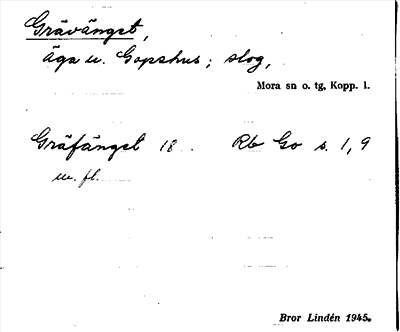 Grävänget,
äga u. Gopshus; slog,
Mora sn o. tg, Kopp. l.
Gräfänget 18 . Rb Go s. 1, 9
m. fl.
Bror Lindén 1945.